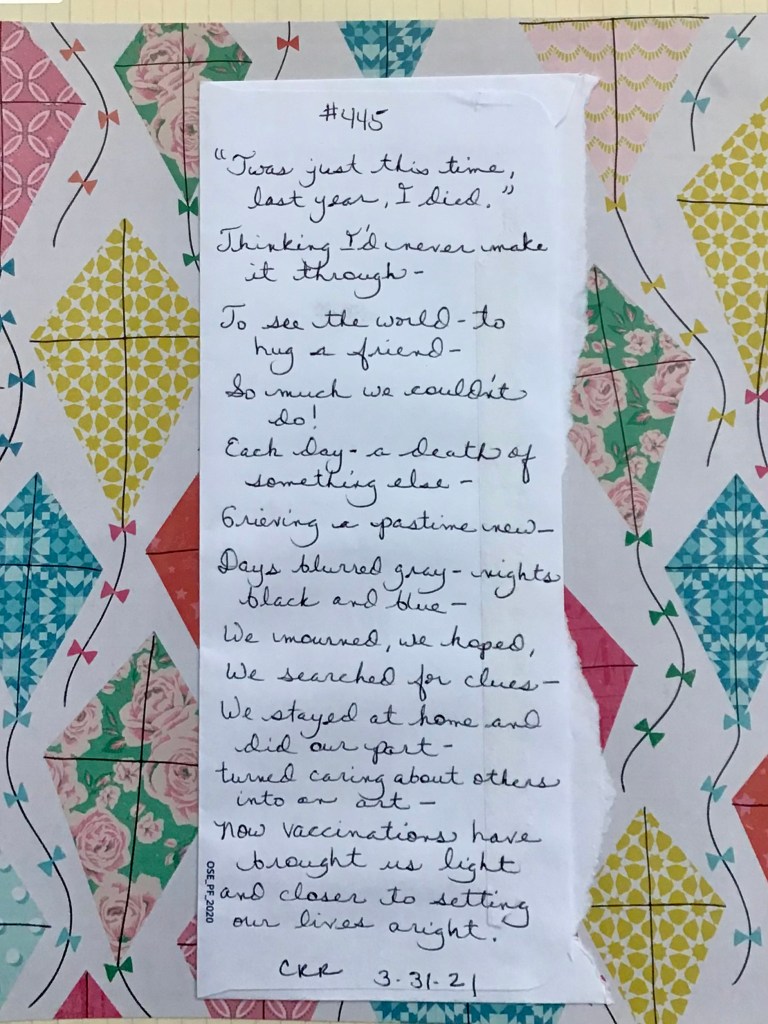 #445
"Twas just this time,
last year, I died."
Thinking I'd never make
it through -
To see the world - to
hug a friend -
So much we couldn't
do!
Each day - a death of
something else -
Grieving a pastime new -
Days blurred gray - nights
black and blue -
We mourned, we hoped,
We searched for clues -
We stayed at home and
did our part -
turned caring about others
into an art -
Now vaccinations have
brought us light
and closer to setting
our lives aright.
CRR 3-31-21
OSE_PF_2020